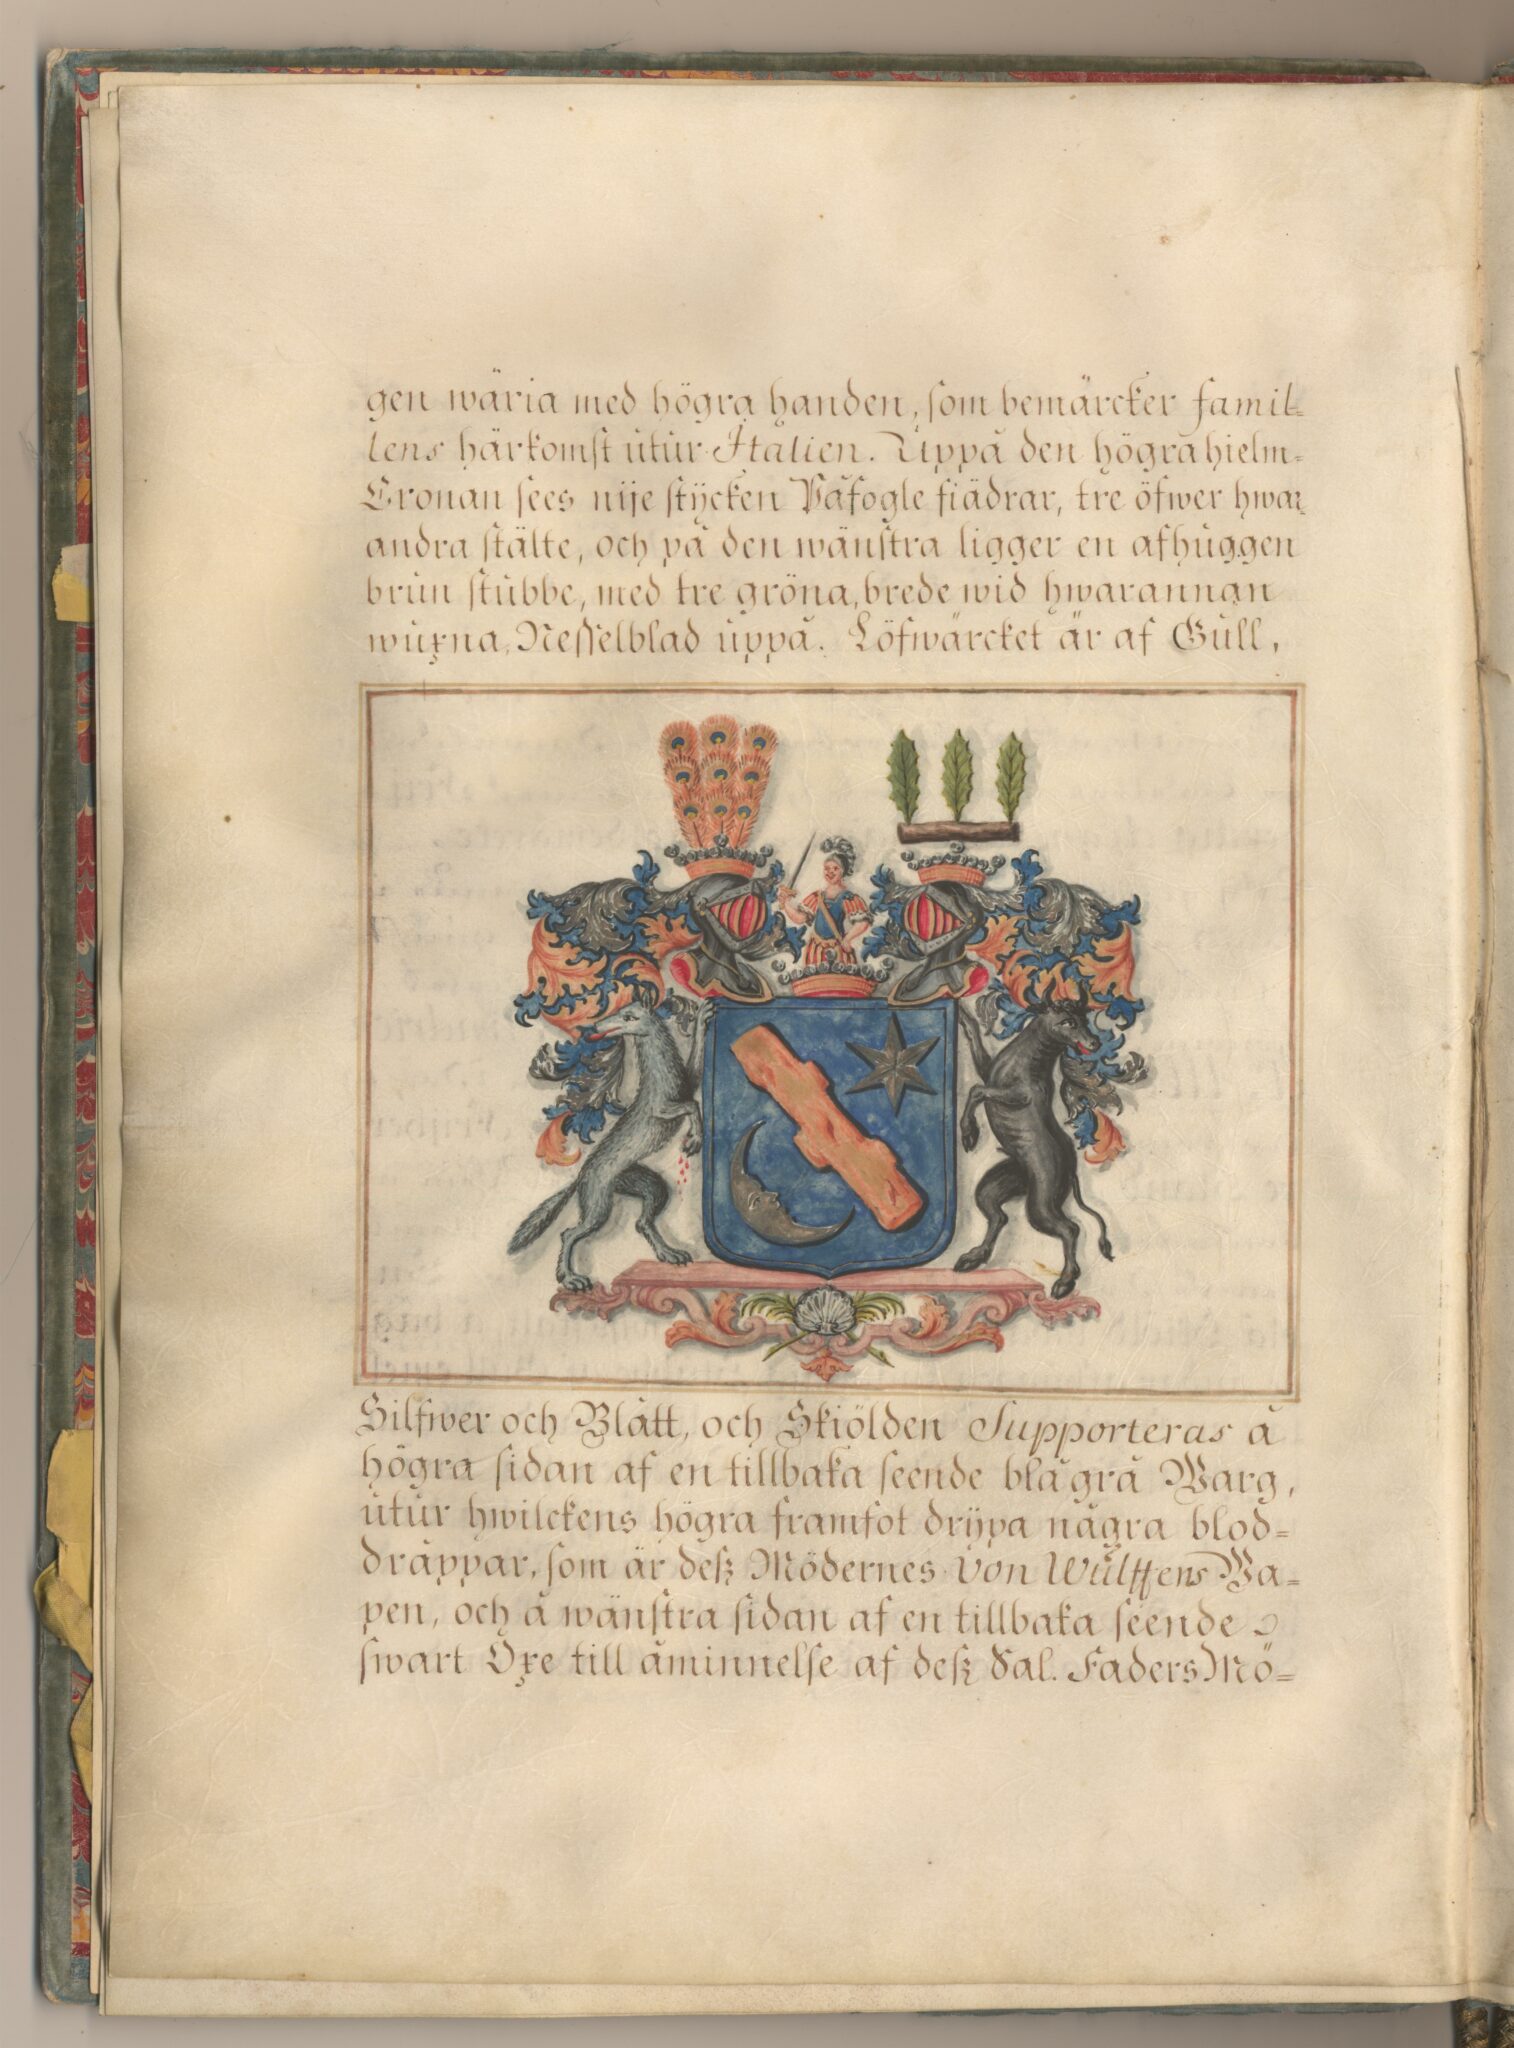 gen wäria med högra handen, som bemärcker famil-
lens härkomst utur Italien. Uppå den högra hielm-
Cronan sees nije stycken Påfogle fiädrar, tre öfwer hwar
andra stälte, och på den wänstra ligger en afhuggen
brun stubbe, med tre gröna, brede wid hwarannan
wuxna, Nesselblad uppå. Löfwärcket är af Gull,
Silfwer och Blått, och Skiölden Supporteras å
högra sidan af en tillbaka seende blågrå Warg,
utur hwilckens högra framfot drypa några blod-
dråppar, som är desz Mödernes Von Wulffens Wa-
pen, och å wänstra sidan af en tillbaka seende
swart Oxe till åminnelse af desz Sal. Faders Mö-